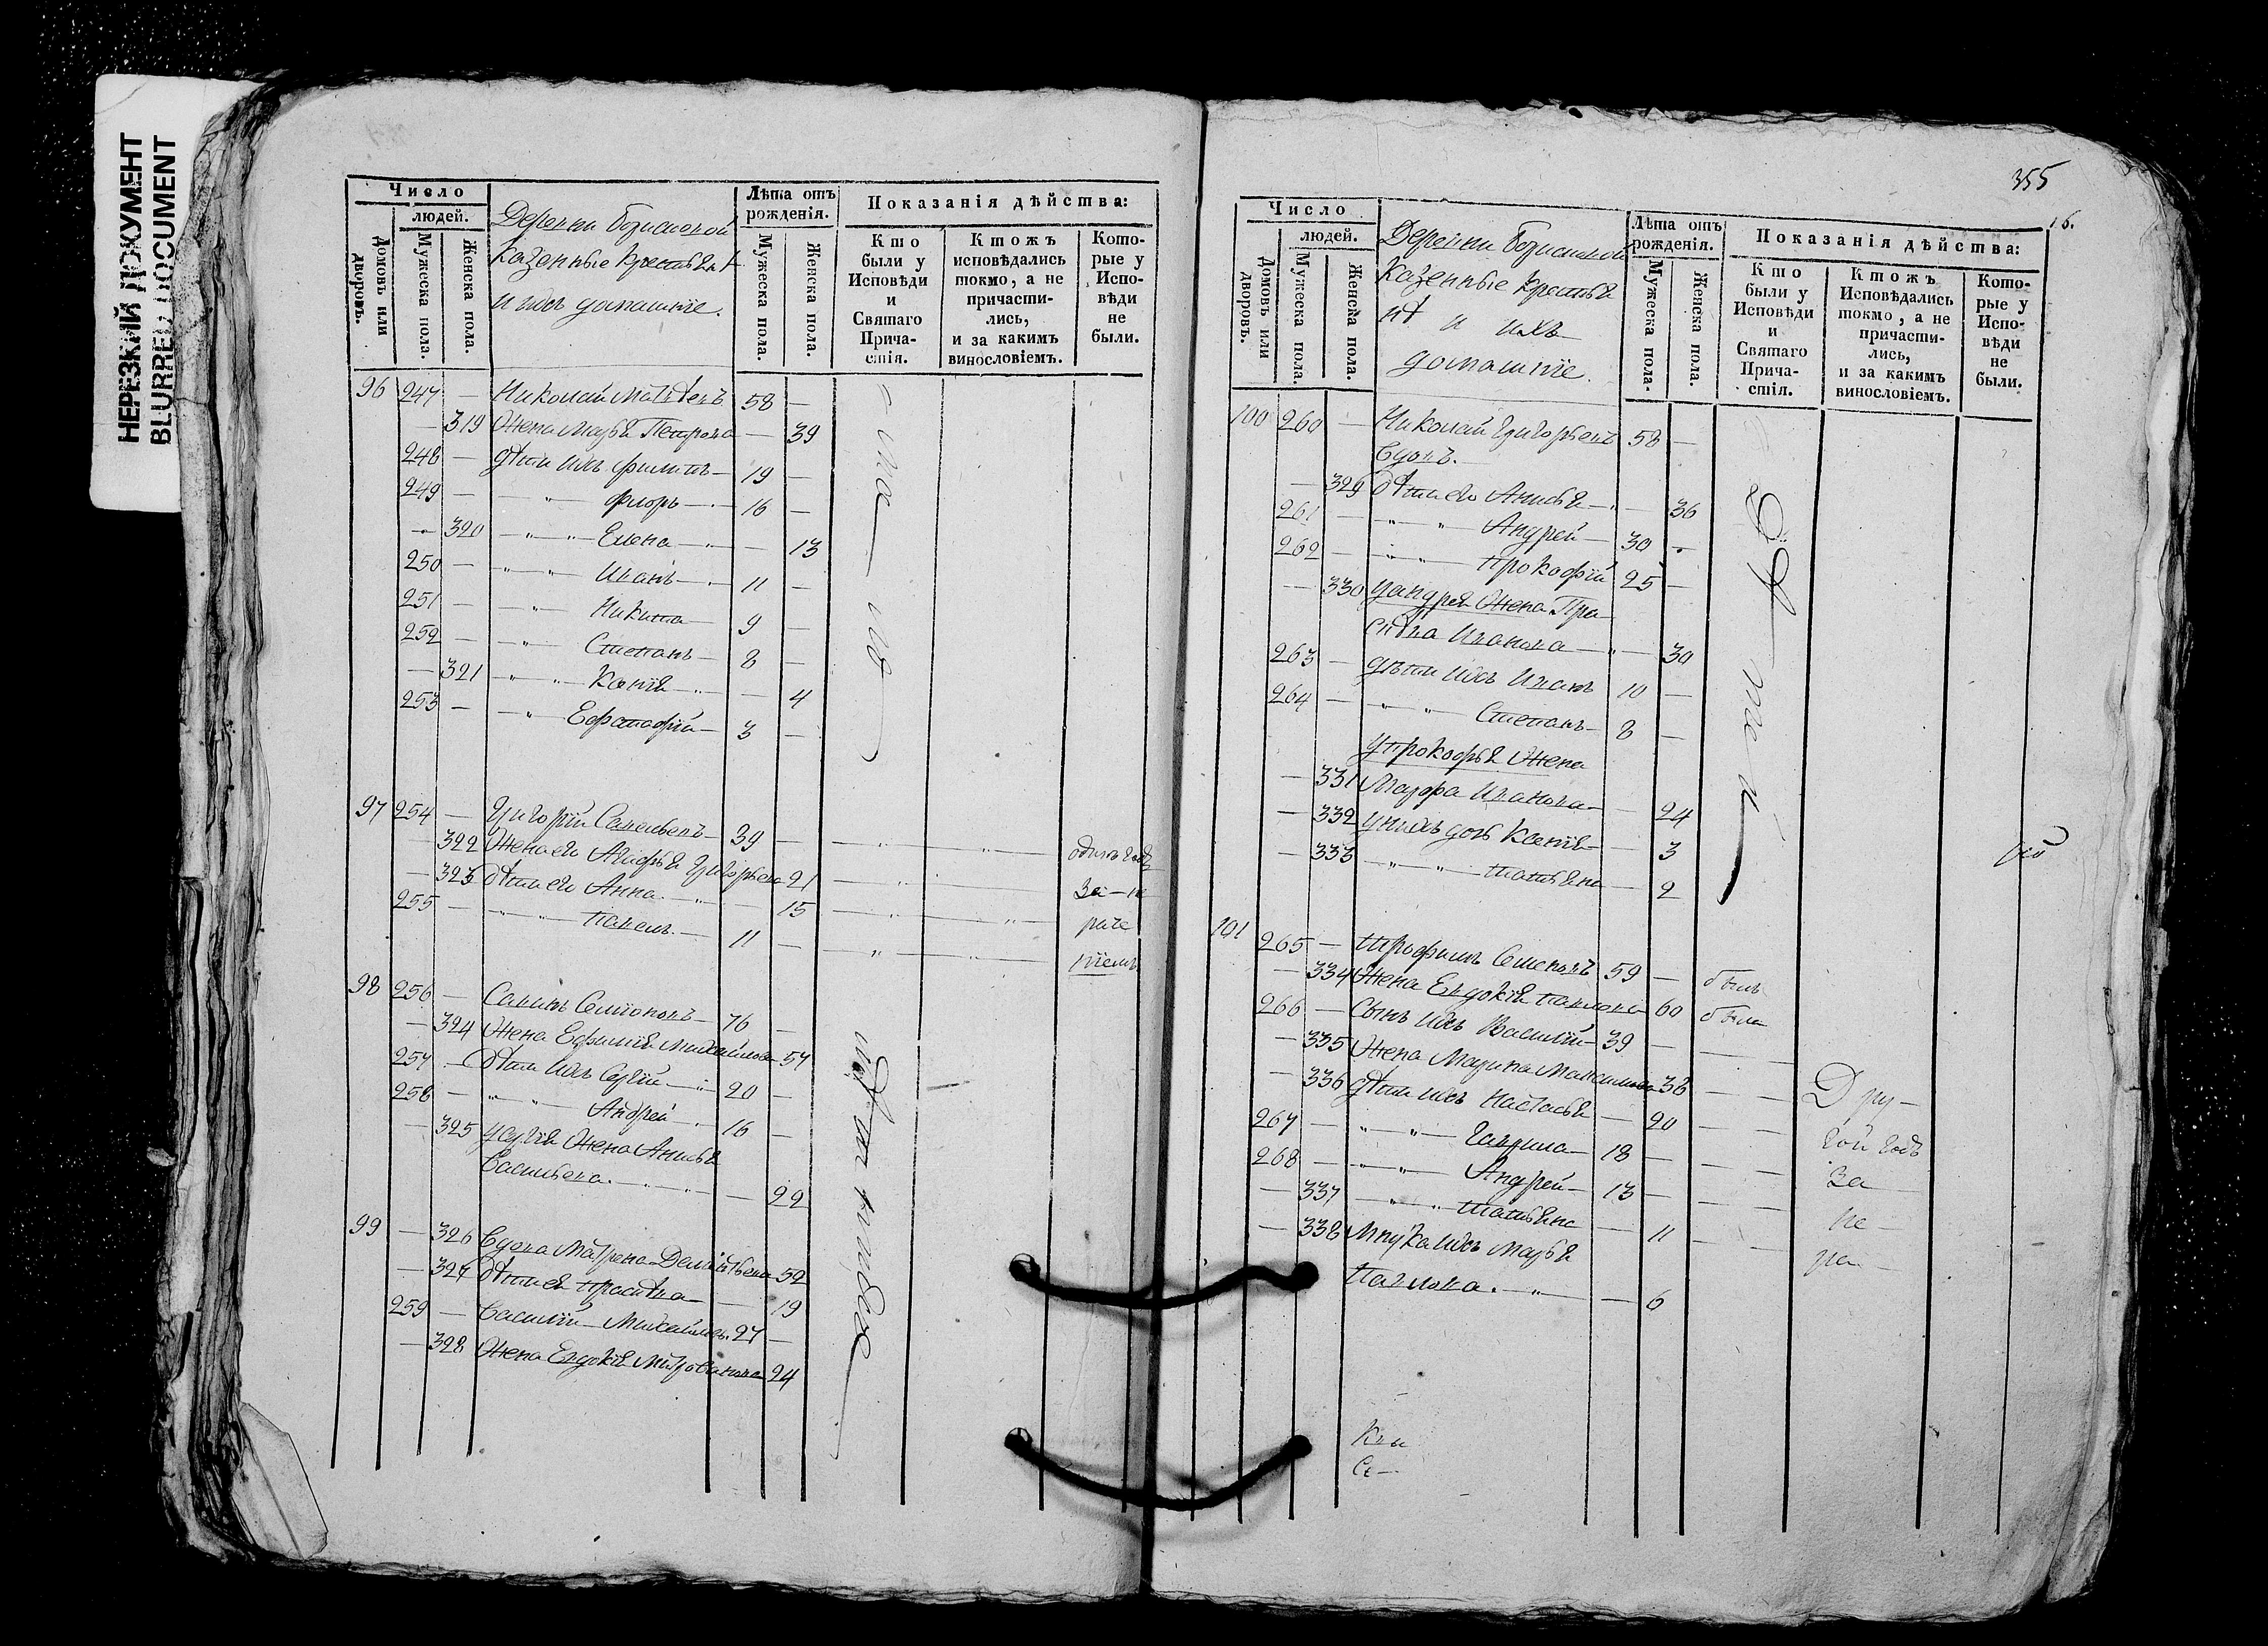 НЕРЕЗКИЙ ДОКУМЕНТ
BLURRED DOCUMENT
Число
людей.
Домовъ или дворовъ.
Мужеска пола.
Женска пола.
казенные крестьян
и ихъ домашнїе.
Лѣта отъ рожденїя.
Мужеска пола.
Женска пола.
Показанїя дѣйства:
Кто были у Исповѣди и Святаго Прича-стїя.
Ктожъ исповѣдались токмо, а не причасти-лись, и за какимъ винословїемъ.
Кото-рые у Испо-вѣди не были.
96 247 — Николай 58 —
— 319 Жена Марья Петрова — 39
248 — дѣти ихъ Филипъ — 19 —
249 — — " — Флоръ — 16 —
— 320 — " — " Елена — " — 13
250 — " — " Иванъ — 11 —
251 — — " — Никита — 9 —
252 — — " — Степанъ — 8 —
— 321 " — " Ксенїя — " — 4
253 — — " — 3 —
97 254 — Григорїй Савельевъ — 39 — — " — " — одинъ годъ
322 Жена его Агафья Григорьева 21 — " — за — не
— 323 дѣти его Анна — " — 15 — " — " — раче
255 — " — " — Павелъ — 11 — — " — " — нїемъ
98 256 — Савинъ Семїоновъ — 76 —
— 324 Жена Ефимїя Михайлова 57
257 — дѣти ихъ Сергїй — " — 20 —
258 — " — " — Андрей — 16 —
— 325 у Сергїя Жена Анисья
Васильева. — " — " — 22
99 — 326 Вдова Матрена Дементьева 52
— 327 дѣти ея Прасковья — 19
259 — Василїй Михайловъ. 27 —
— 328 Жена Евдокїя 24
355
16.
Число
людей.
Домовъ или дворовъ.
Мужеска пола.
Женска пола.
казенные крестья
нѣ и ихъ
домашнїе.
Лѣта отъ рожденїя.
Мужеска пола.
Женска пола.
Показанїя дѣйства:
Кто были у Исповѣди и Святаго Прича-стїя.
Ктожъ Исповѣдались токмо, а не причасти-лись, и за какимъ винословїемъ.
Кото-рые у Испо-вѣди не были.
100 260 — Николай Григорьевъ 58 —
Вдовъ.
— 329 дѣти его Анисья — " — 36
261 — " — " — Андрей — 30 —
262 — " — " — Прокофїй 25 —
— 330 у Андрея Жена Пра-
Иванова — " — 30
263 — дѣти ихъ Иванъ 10 —
264 — " — " — Степанъ — 8 —
у Прокофья Жена
— 331 Мавра Иванова — — 24
— 332 у нихъ дочь Ксенїя — — 3
— 333 — " — " Татьяна — 2
101 265 — Трофимъ Семеновъ 59 — былъ
— 334 Жена Евдокїя Павлова 60 была
266 — Сынъ ихъ Василїй — 39 — —
— 335 Жена Марина Максимова 38 — — Дру —
— 336 дѣти ихъ Настасья — 20 — — гой годъ
267 — " — " — Гаврила — 18 — — — за
268 — " — " — Андрей — 13 — — — не —
— 337 — " — " Татьяна — 11 — — ра —
— 338 Внука ихъ Марья
Павлова. — " — — 6